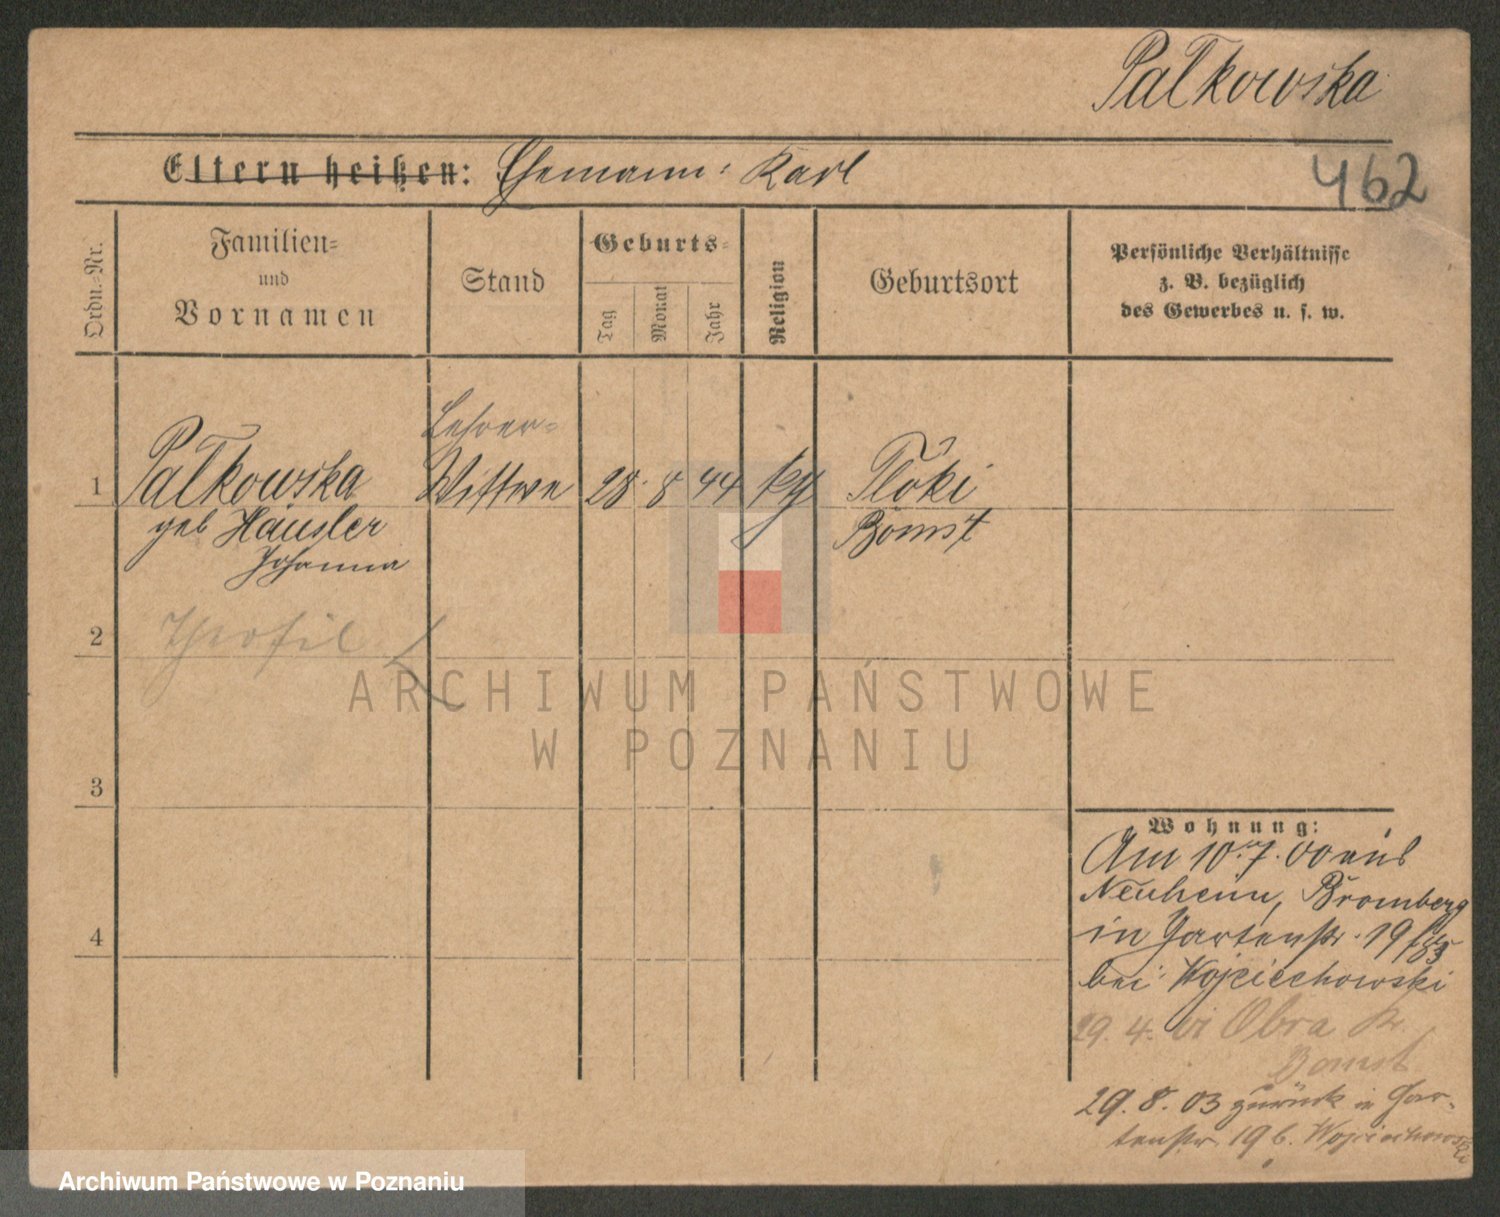 Pałkowska
462
Eltern heißen: Ehemann: Karl
Ordn.-Nr.
Familien-
und
Vornamen
Stand
Geburts-
Tag
Monat
Jahr
Religion
Geburtsort
Persönliche Verhältnisse
z. B. bezüglich
des Gewerbes u. s. w.
Lehrer-
1 Pałkowska Wittwe 28. 8 44 kg Tłoki
geb Häusler Bomst
Johanna
2 Theofil
3
4
Wohnung:
Am 10.7.00 aus
Neuheim, Bromberg
in Gartenstr. 19
bei Wojciechowski
29. 4. Obra Kr.
Bomst
29. 8. 03 zurück in Gar-
tenstr. 19 b. Wojciechowski
ARCHIWUM PAŃSTWOWE
W POZNANIU
Archiwum Państwowe w Poznaniu